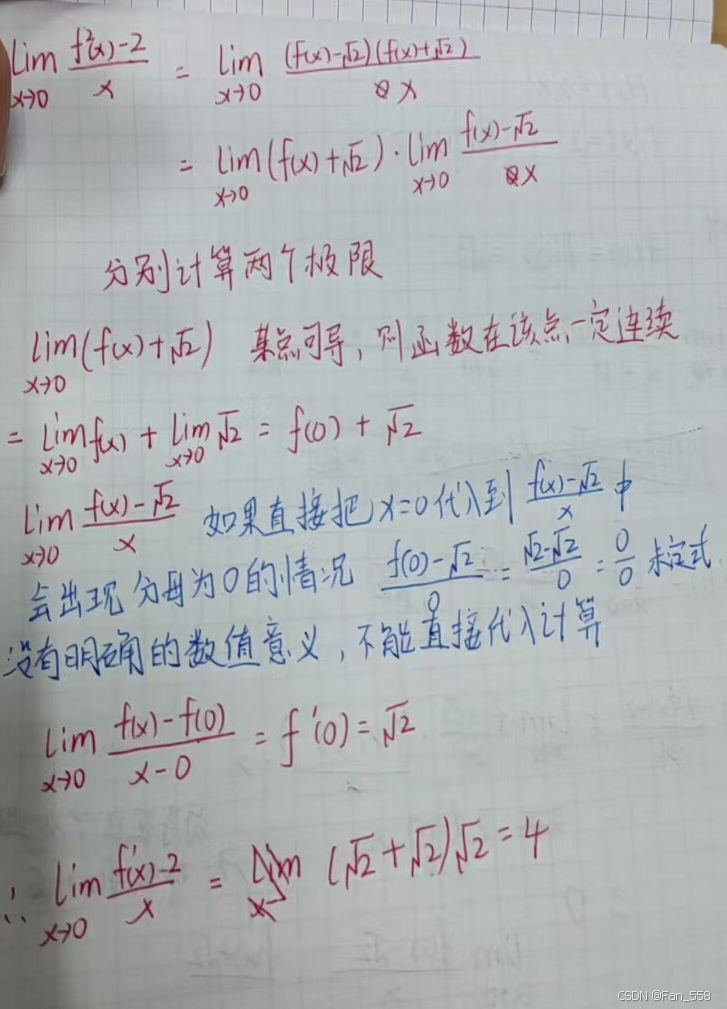 lim x→0 (f²(x)-2)/x = lim x→0 ((f(x)-√2)(f(x)+√2))/x
= lim x→0 (f(x)+√2)·lim x→0 (f(x)-√2)/x
分别计算两个极限
lim x→0 (f(x)+√2) 某点可导，则函数在该点一定连续
= lim x→0 f(x) + lim x→0 √2 = f(0) + √2
lim x→0 (f(x)-√2)/x 如果直接把x=0代入到 (f(x)-√2)/x 中
会出现分母为0的情况 (f(0)-√2)/0 = (√2-√2)/0 = 0/0 未定式
没有明确的数值意义，不能直接代入计算
lim x→0 (f(x)-f(0))/(x-0) = f'(0) = √2
∴ lim x→0 (f²(x)-2)/x = (√2+√2)√2 = 4
CSDN @Fan_558